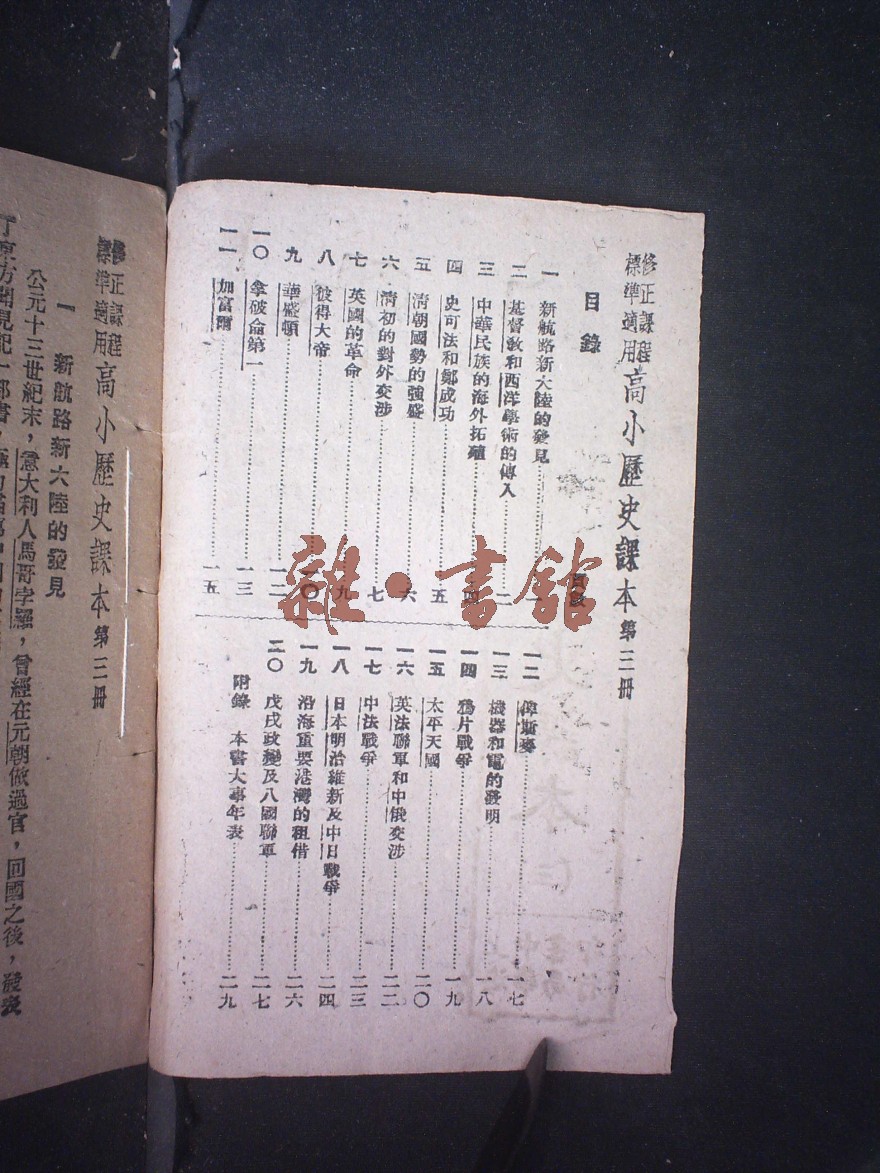 修正課程標準適用 高小歷史課本 第三冊
目錄
頁數
一 新航路新大陸的發見
二 基督教和西洋學術的傳入 一
三 中華民族的海外拓殖 四
四 史可法和鄭成功 五
五 清朝國勢的強盛 六
六 清初的對外交涉 七
七 英國的革命 九
八 彼得大帝 一〇
九 華盛頓 一二
一〇 拿破侖第一 一三
一一 加富爾 一五
一二 俾斯麥 一七
一三 機器和電的發明 一八
一四 鴉片戰爭 一九
一五 太平天國 二〇
一六 英法聯軍和中俄交涉 二二
一七 中法戰爭 二三
一八 日本明治維新及中日戰爭 二四
一九 沿海重要港灣的租借 二六
二〇 戊戌政變及八國聯軍 二七
附錄 本書大事年表 二九
修正課程標準適用 高小歷史課本 第三冊
一 新航路新大陸的發見
公元十三世紀末，意大利人馬哥孛羅，曾經在元朝做過官，回國之後，發表
雜·書館